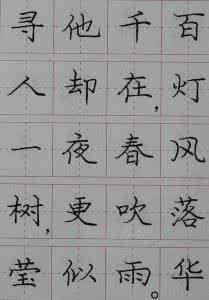 寻他千百
人却在，灯
一夜春风
树，更吹落
莹似雨。华